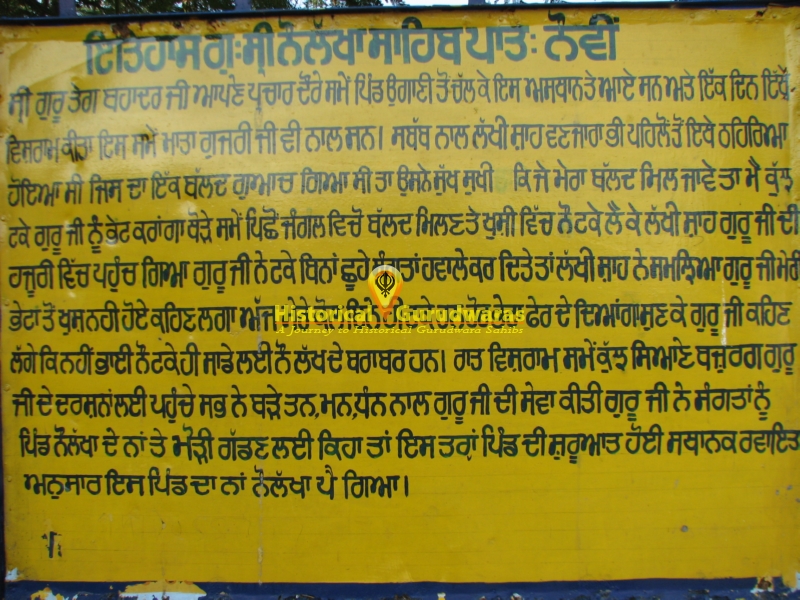 ਇਤਿਹਾਸ ਗੁ: ਸ੍ਰੀ ਨੌਲੱਖਾ ਸਾਹਿਬ ਪਾਤ: ਨੌਵੀਂ
ਸ੍ਰੀ ਗੁਰੂ ਤੇਗ ਬਹਾਦਰ ਜੀ ਆਪਣੇ ਪ੍ਰਚਾਰ ਦੌਰੇ ਸਮੇਂ ਪਿੰਡ ਉਗਾਣੀ ਤੋਂ ਚੱਲ ਕੇ ਇਸ ਅਸਥਾਨ ਤੇ ਆਏ ਸਨ ਅਤੇ ਇੱਕ ਦਿਨ ਇੱਥੇ
ਵਿਸ਼ਰਾਮ ਕੀਤਾ ਇਸ ਸਮੇਂ ਮਾਤਾ ਗੁਜਰੀ ਜੀ ਵੀ ਨਾਲ ਸਨ। ਸਬੱਬ ਨਾਲ ਲੱਖੀ ਸ਼ਾਹ ਵਣਜਾਰਾ ਭੀ ਪਹਿਲੋਂ ਤੋਂ ਇਥੇ ਠਹਿਰਿਆ
ਹੋਇਆ ਸੀ ਜਿਸ ਦਾ ਇੱਕ ਬੱਲਦ ਗੁਆਚ ਗਿਆ ਸੀ ਤਾ ਉਸਨੇ ਸੁੱਖ ਸੁਖੀ ਕਿ ਜੇ ਮੇਰਾ ਬੱਲਦ ਮਿਲ ਜਾਵੇ ਤਾ ਮੈ ਕੁੱਝ
ਟਕੇ ਗੁਰੂ ਜੀ ਨੂੰ ਭੇਟ ਕਰਾਂਗਾ ਥੋੜੇ ਸਮੇਂ ਪਿਛੋਂ ਜੰਗਲ ਵਿਚੋ ਬੱਲਦ ਮਿਲਣ ਤੇ ਖੁਸੀ ਵਿੱਚ ਨੌ ਟਕੇ ਲੈ ਕੇ ਲੱਖੀ ਸ਼ਾਹ ਗੁਰੂ ਜੀ ਦੀ
ਹਜੂਰੀ ਵਿੱਚ ਪਹੁੰਚ ਗਿਆ ਗੁਰੂ ਜੀ ਨੇ ਟਕੇ ਬਿਨਾਂ ਛੂਹੇ ਸੰਗਤਾਂ ਹਵਾਲੇ ਕਰ ਦਿਤੇ ਤਾਂ ਲੱਖੀ ਸ਼ਾਹ ਨੇ ਸਮਝਿਆ ਗੁਰੂ ਜੀ ਮੇਰੀ
ਭੇਟਾਂ ਤੋਂ ਖੁਸ਼ ਨਹੀ ਹੋਏ ਕਹਿਣ ਲਗਾ ਫੇਰ ਦੇ ਦਿਆਂਗਾ ਸੁਣ ਕੇ ਗੁਰੂ ਜੀ ਕਹਿਣ
ਲੱਗੇ ਕਿ ਨਹੀਂ ਭਾਈ ਨੌ ਟਕੇ ਹੀ ਸਾਡੇ ਲਈ ਨੌ ਲੱਖ ਦੇ ਬਰਾਬਰ ਹਨ। ਰਾਤ ਵਿਸ਼ਰਾਮ ਸਮੇਂ ਕੁੱਝ ਸਿਆਣੇ ਬਜੁਰਗ ਗੁਰੂ
ਜੀ ਦੇ ਦਰਸ਼ਨਾਂ ਲਈ ਪਹੁੰਚੇ ਸਭ ਨੇ ਬੜੇ ਤਨ,ਮਨ,ਧੰਨ ਨਾਲ ਗੁਰੂ ਜੀ ਦੀ ਸੇਵਾ ਕੀਤੀ ਗੁਰੂ ਜੀ ਨੇ ਸੰਗਤਾਂ ਨੂੰ
ਪਿੰਡ ਨੌਲੱਖਾ ਦੇ ਨਾਂ ਤੇ ਮੋੜੀ ਗੱਡਣ ਲਈ ਕਿਹਾ ਤਾਂ ਇਸ ਤਰਾਂ ਪਿੰਡ ਦੀ ਸ਼ੁਰੂਆਤ ਹੋਈ ਸਥਾਨਕ ਰਵਾਇਤ
ਅਨੁਸਾਰ ਇਸ ਪਿੰਡ ਦਾ ਨਾਂ ਨੌਲੱਖਾ ਪੈ ਗਿਆ।
Historical Gurudwaras
A Journey to Historical Gurudwara Sahibs